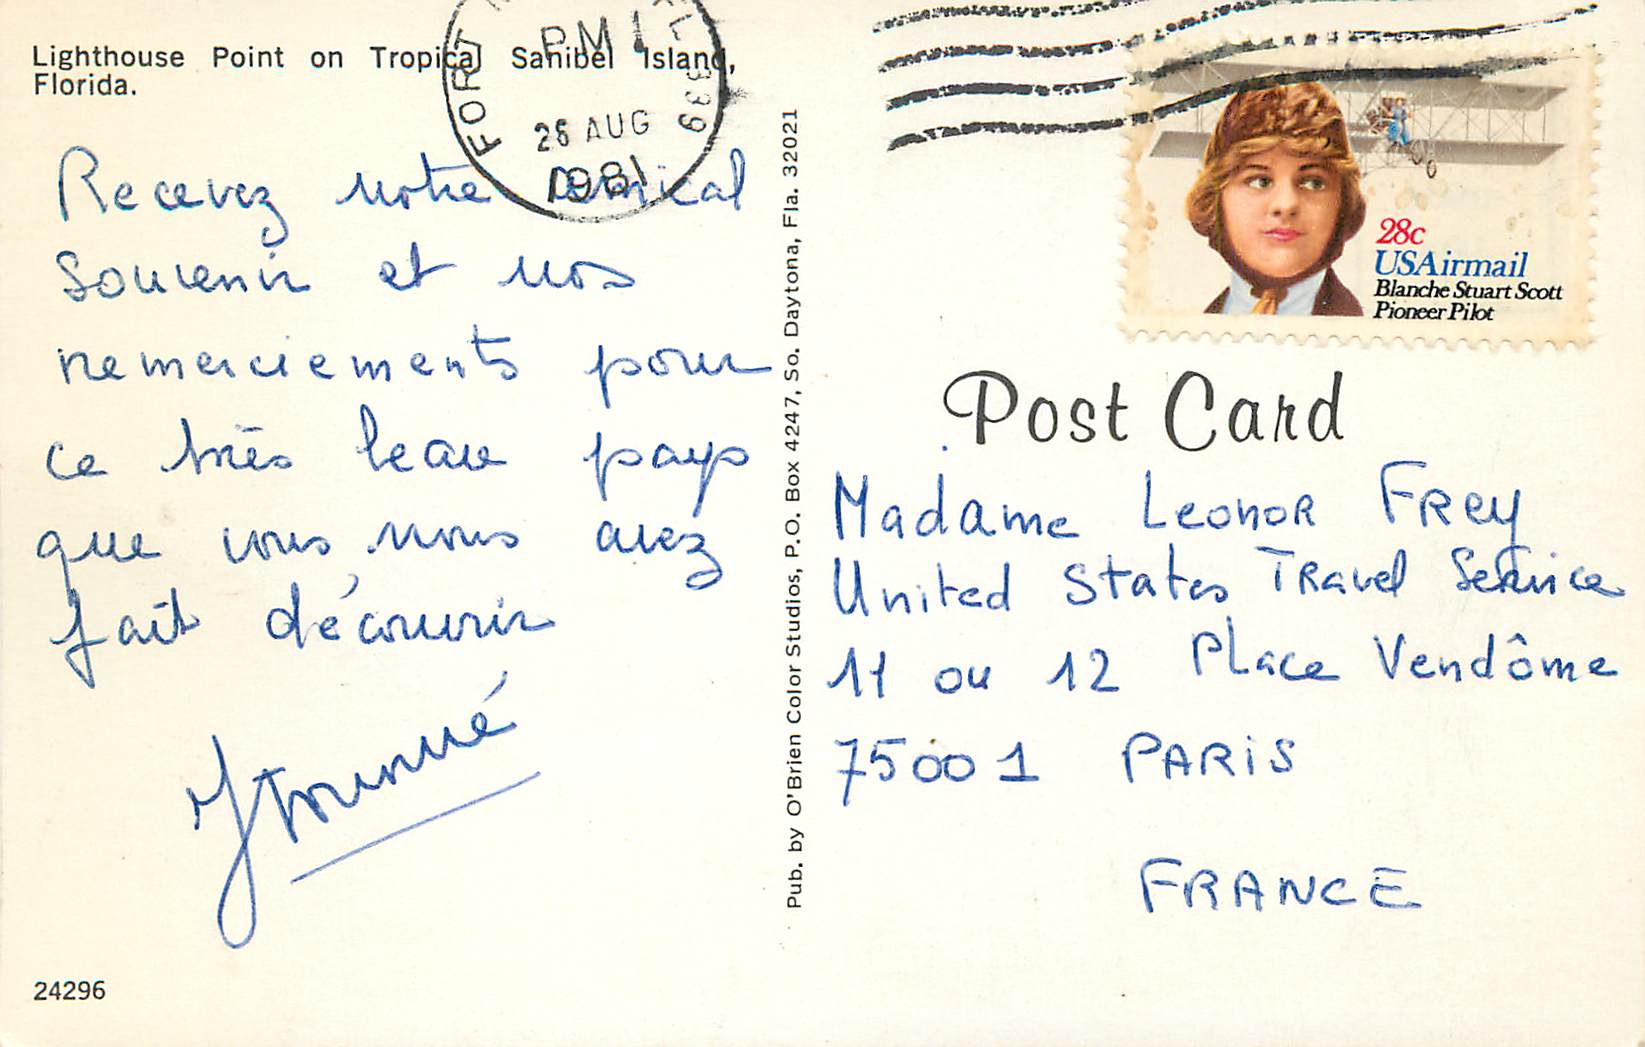 Lighthouse Point on Tropical Sanibel Island,
Florida.
FORT FL 339
PM
26 AUG
1981
Recevez notre amical
souvenir et nos
remerciements pour
ce très beau pays
que vous nous avez
fait découvrir
24296
Pub. by O'Brien Color Studios, P.O. Box 4247, So. Daytona, Fla. 32021
28c
USAirmail
Blanche Stuart Scott
Pioneer Pilot
Post Card
Madame Leonor Frey
United States Travel Service
11 ou 12 Place Vendôme
75001 PARIS
FRANCE